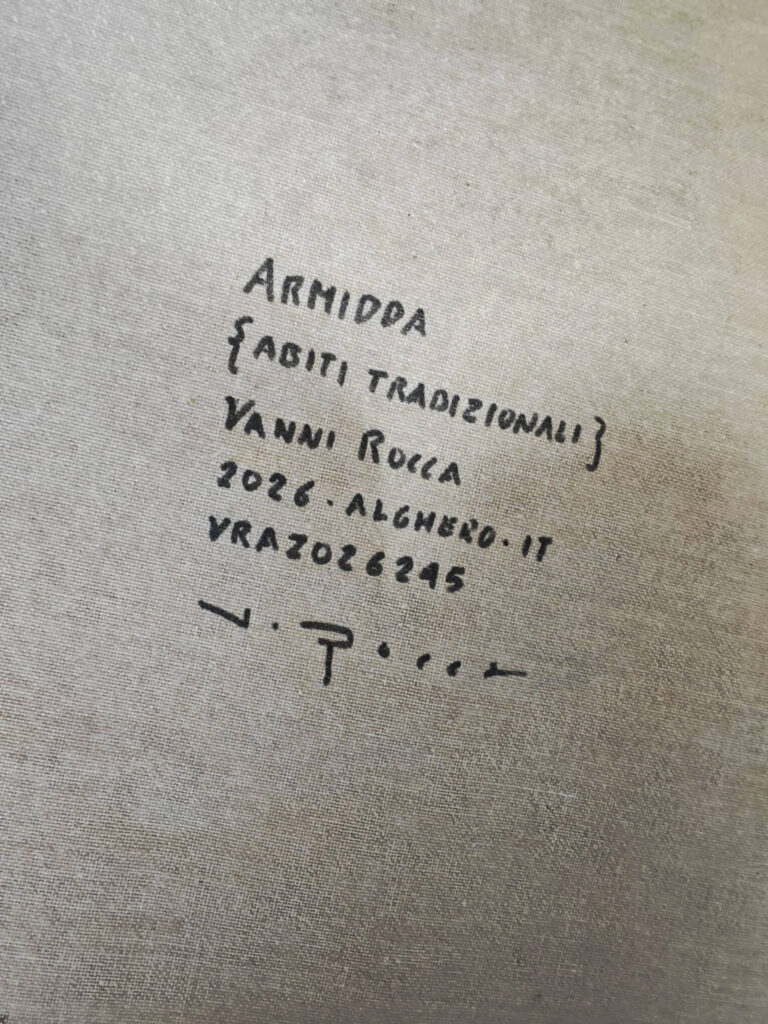 ARMIDDA
{ABITI TRADIZIONALI}
VANNI ROCCA
2026. ALGHERO. IT
VRA2026245
V. Rocca